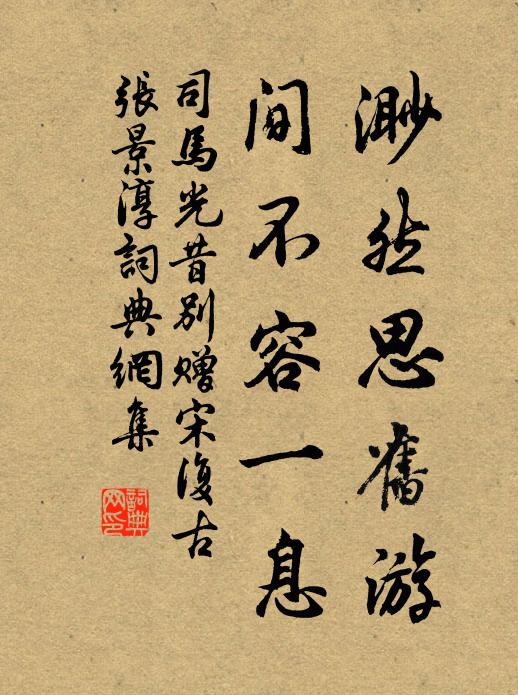 渺然思舊游
間不容一息
司馬光昔別贈宋復古
張景淳詞典網集
詞典網印